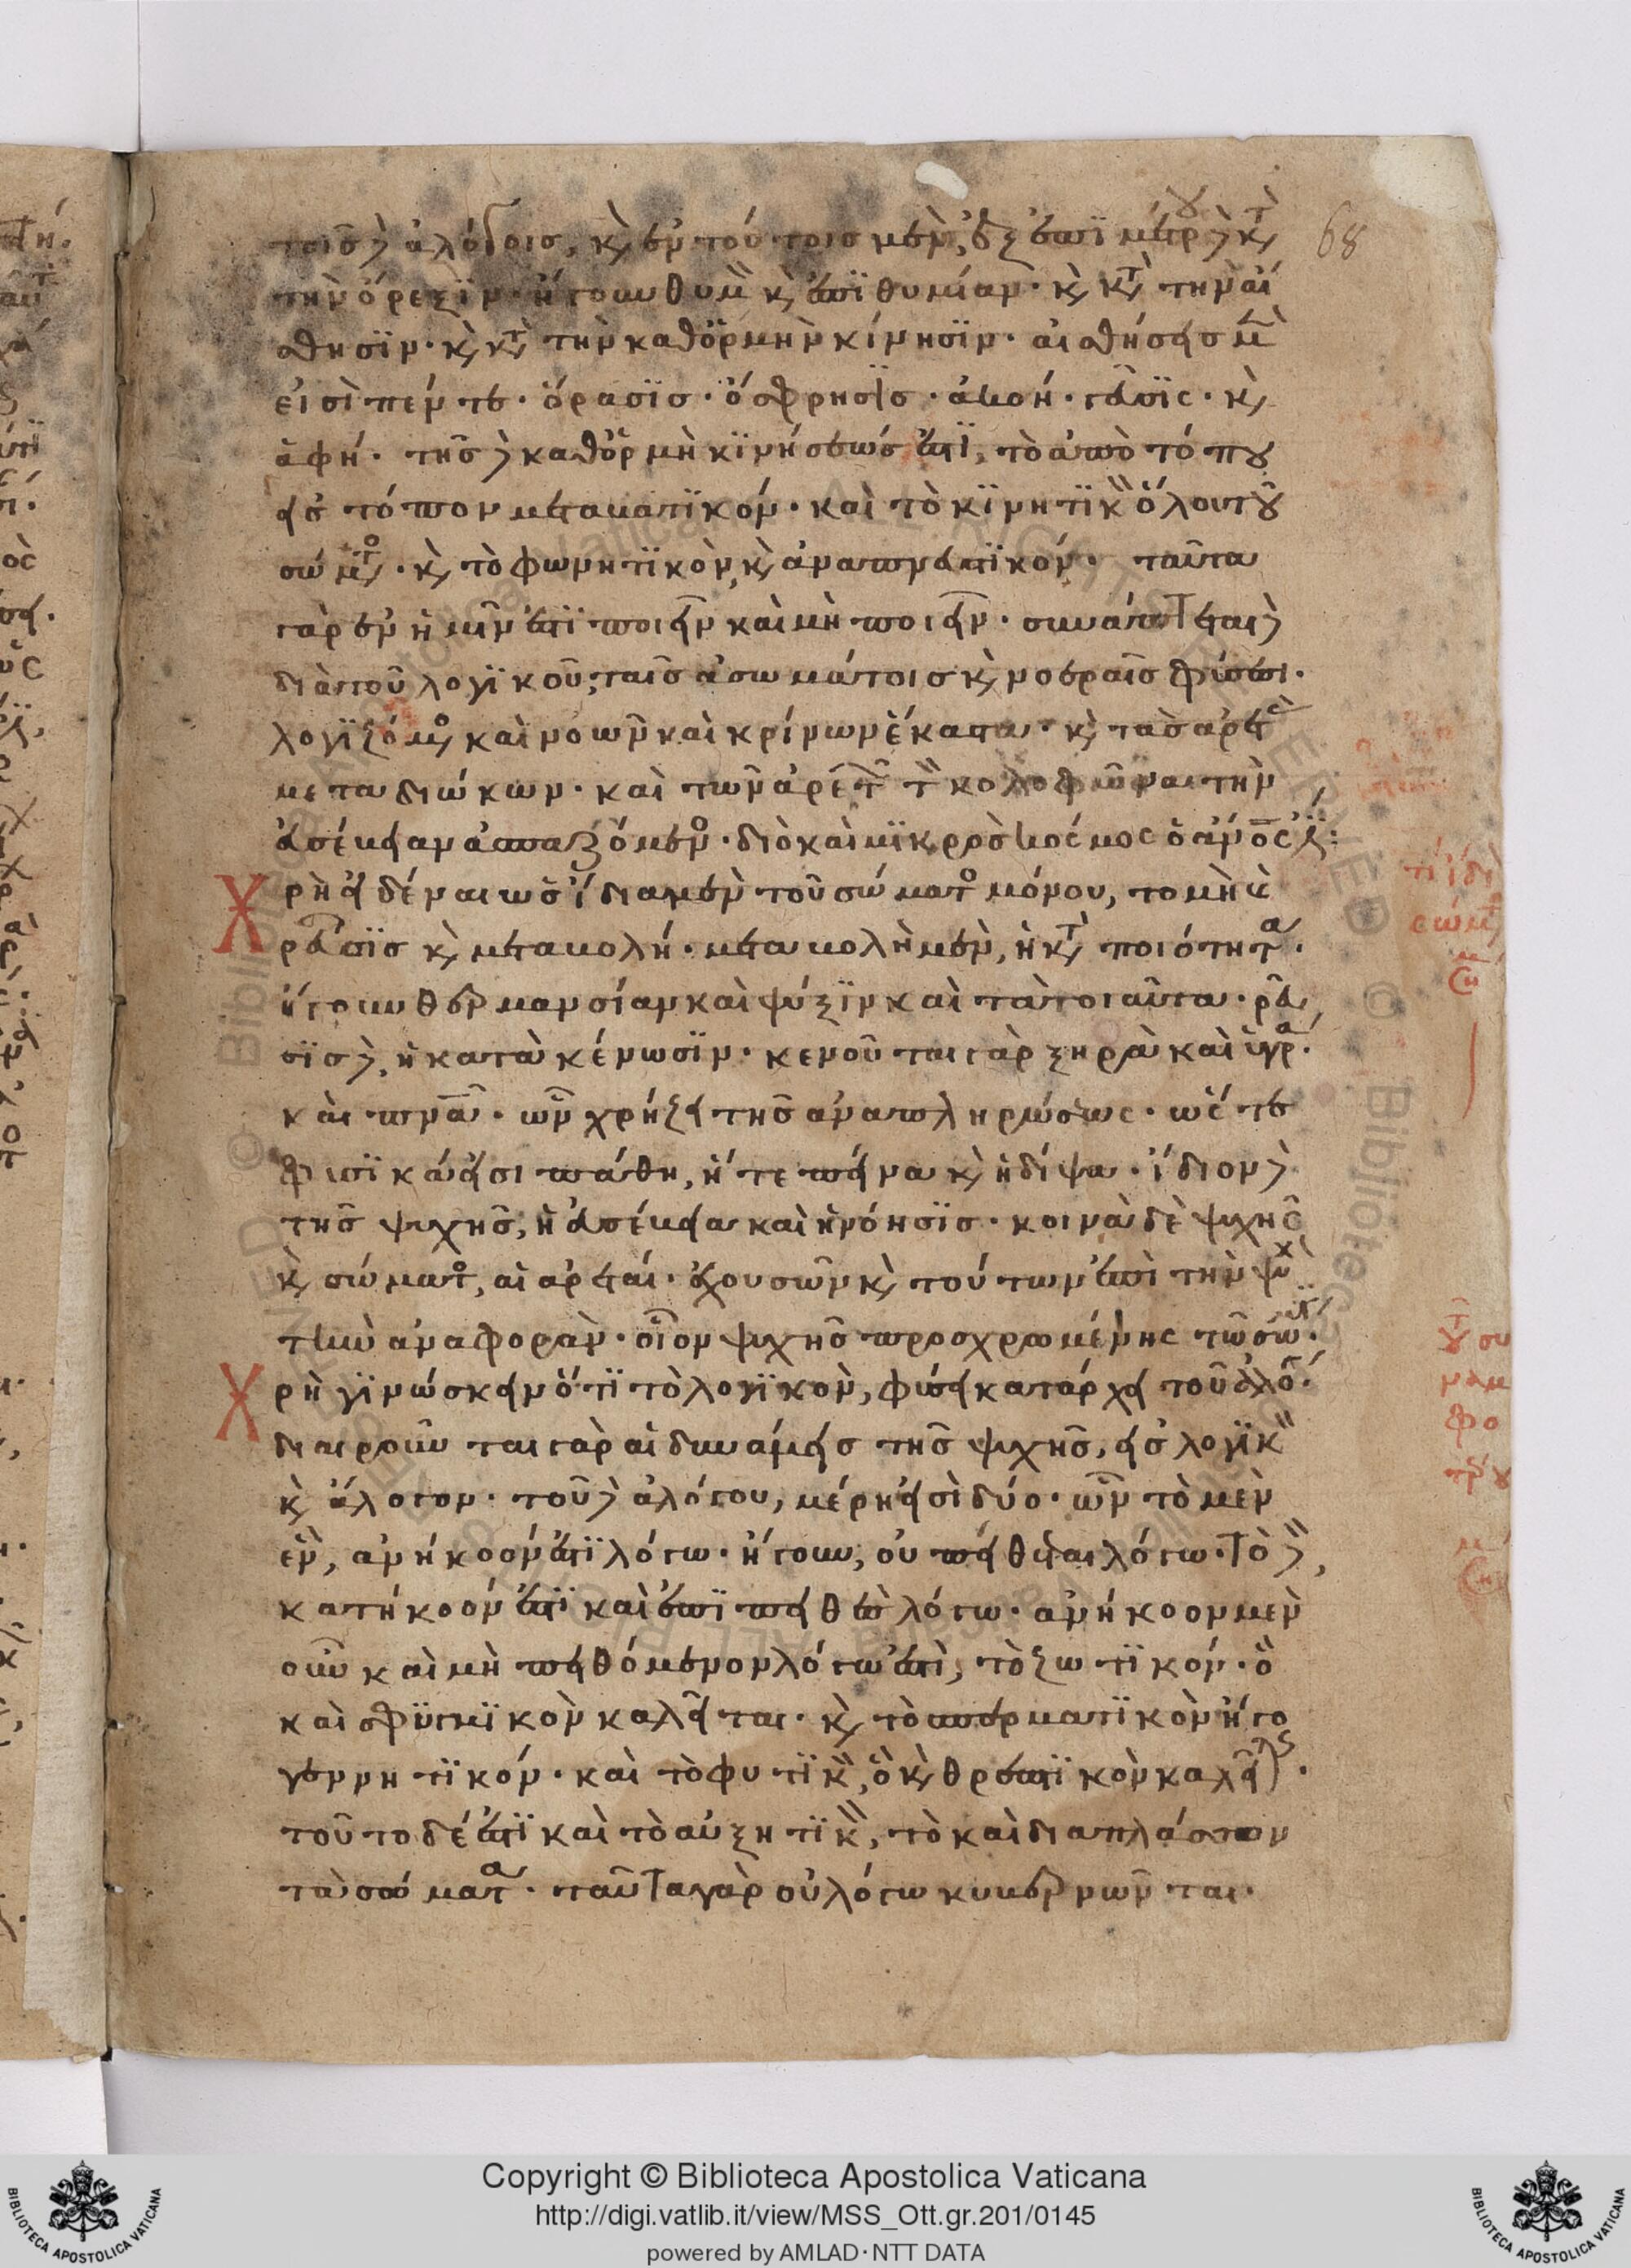 τοῖς δὲ ἀλόγοις, κ(αὶ) ἐν τούτοις μὲν, ἐξ ἐπιμέτρου δὲ κ(α)τ(ὰ)
τὴν ὄρεξϊν· ἤγουν θυμὸν κ(αὶ) ἐπϊθυμίαν· κ(αὶ) κ(α)τ(ὰ) τὴν αἴ
σθησϊν· κ(αὶ) κ(α)τ(ὰ) τὴν καθ' ὁρμὴν κίνησϊν· αἰσθήσεις μὲν
εἰσὶ πέντε· ὅρασϊς· ὄσφρησϊς· ἀκοή· γεῦσϊς· κ(αὶ)
ἁφή· τῆς δὲ καθ' ὁρμὴν κϊνήσεώς ἐστϊ, τὸ ἀπὸ τόπου
εἰς τόπον μεταβατϊκόν· καὶ τὸ κϊνητϊκὸν ὅλου τοῦ
σώματος· κ(αὶ) τὸ φωνητϊκὸν κ(αὶ) ἀναπνευστϊκόν· ταῦτα
γὰρ ἐν ἡμῖν ἐστϊ ποιεῖν καὶ μὴ ποιεῖν· συνάπτεται δὲ
διὰ τοῦ λογϊκοῦ, ταῖς ἀσωμάτοις κ(αὶ) νοεραῖς φύσεσι·
λογϊζόμενος καὶ νοῶν καὶ κρίνων ἕκαστα· κ(αὶ) τὰς ἀρετὰς
μεταδιώκων· καὶ τῶν ἀρετῶν τὸν κολοφῶνα τὴν
εὐσέβειαν ἀσπαζόμενος· διὸ καὶ μϊκρὸς κόσμος ὁ ἄν(θρωπ)ός ἐστϊ:
Χρὴ εἰδέναι ὡς ἴδια μὲν τοῦ σώματος μόνου, τομὴ κ(αὶ)
ῥεῦσϊς κ(αὶ) μεταβολή· μεταβολὴ μὲν, ἡ κ(α)τ(ὰ) ποιότητα·
ἤγουν θερμανσίαν καὶ ψύξϊν καὶ τὰ τοιαῦτα· ῥεῦ
σϊς δὲ, ἡ κατὰ κένωσϊν· κενοῦται γὰρ ξηρὰ καὶ ὑγρὰ·
καὶ πν(εῦμ)α· ὧν χρήζει τῆς ἀναπληρώσεως· ὥστε
φυσϊκά εἰσι πάθη, ἥ τε πεῖνα κ(αὶ) ἡ δίψα· ἴδιον δὲ
τῆς ψυχῆς, ἡ εὐσέβεια καὶ ἡ νόησϊς· κοινὰ δὲ ψυχῆς
κ(αὶ) σώματος, αἱ ἀρεταί· ἐχουσῶν κ(αὶ) τούτων ἐπὶ τὴν ψυχὴν
τὴν ἀναφοράν· οἷον ψυχῆς προσχρωμένης τῷ σώματι·
Χρὴ γϊνώσκειν ὅτϊ τὸ λογϊκὸν, φύσει κατάρχει τοῦ ἀλόγου·
διαιροῦνται γὰρ αἱ δυνάμεις τῆς ψυχῆς, εἰς λογϊκὸν
κ(αὶ) ἄλογον· τοῦ δὲ ἀλόγου, μέρη εἰσὶ δύο· ὧν τὸ μὲν
ἓν, ἀνήκοόν ἐστϊ λόγῳ· ἤγουν, οὐ πείθεται λόγῳ· τὸ δὲ,
κατήκοόν ἐστϊ καὶ ἐπϊπειθὲς λόγῳ· ἀνήκοον μὲν
οὖν καὶ μὴ πειθόμενον λόγῳ ἐστὶ, τὸ ζωτϊκόν· ὃ
καὶ σφυγμϊκὸν καλεῖται· κ(αὶ) τὸ σπερματϊκὸν ἤγο
γεννητϊκόν· καὶ τὸ φυτϊκὸν, ὃ κ(αὶ) θρεπτϊκὸν καλεῖται·
τούτο δέ ἐστϊ καὶ τὸ αὐξητϊκὸν, τὸ καὶ διαπλάσσον
τὰ σώματα· ταῦτα γὰρ οὐ λόγῳ κυβερνῶνται·
68
Copyright © Biblioteca Apostolica Vaticana
http://digi.vatlib.it/view/MSS_Ott.gr.201/0145
powered by AMLAD·NTT DATA
BIBLIOTECA APOSTOLICA VATICANA
BIBLIOTECA APOSTOLICA VATICANA